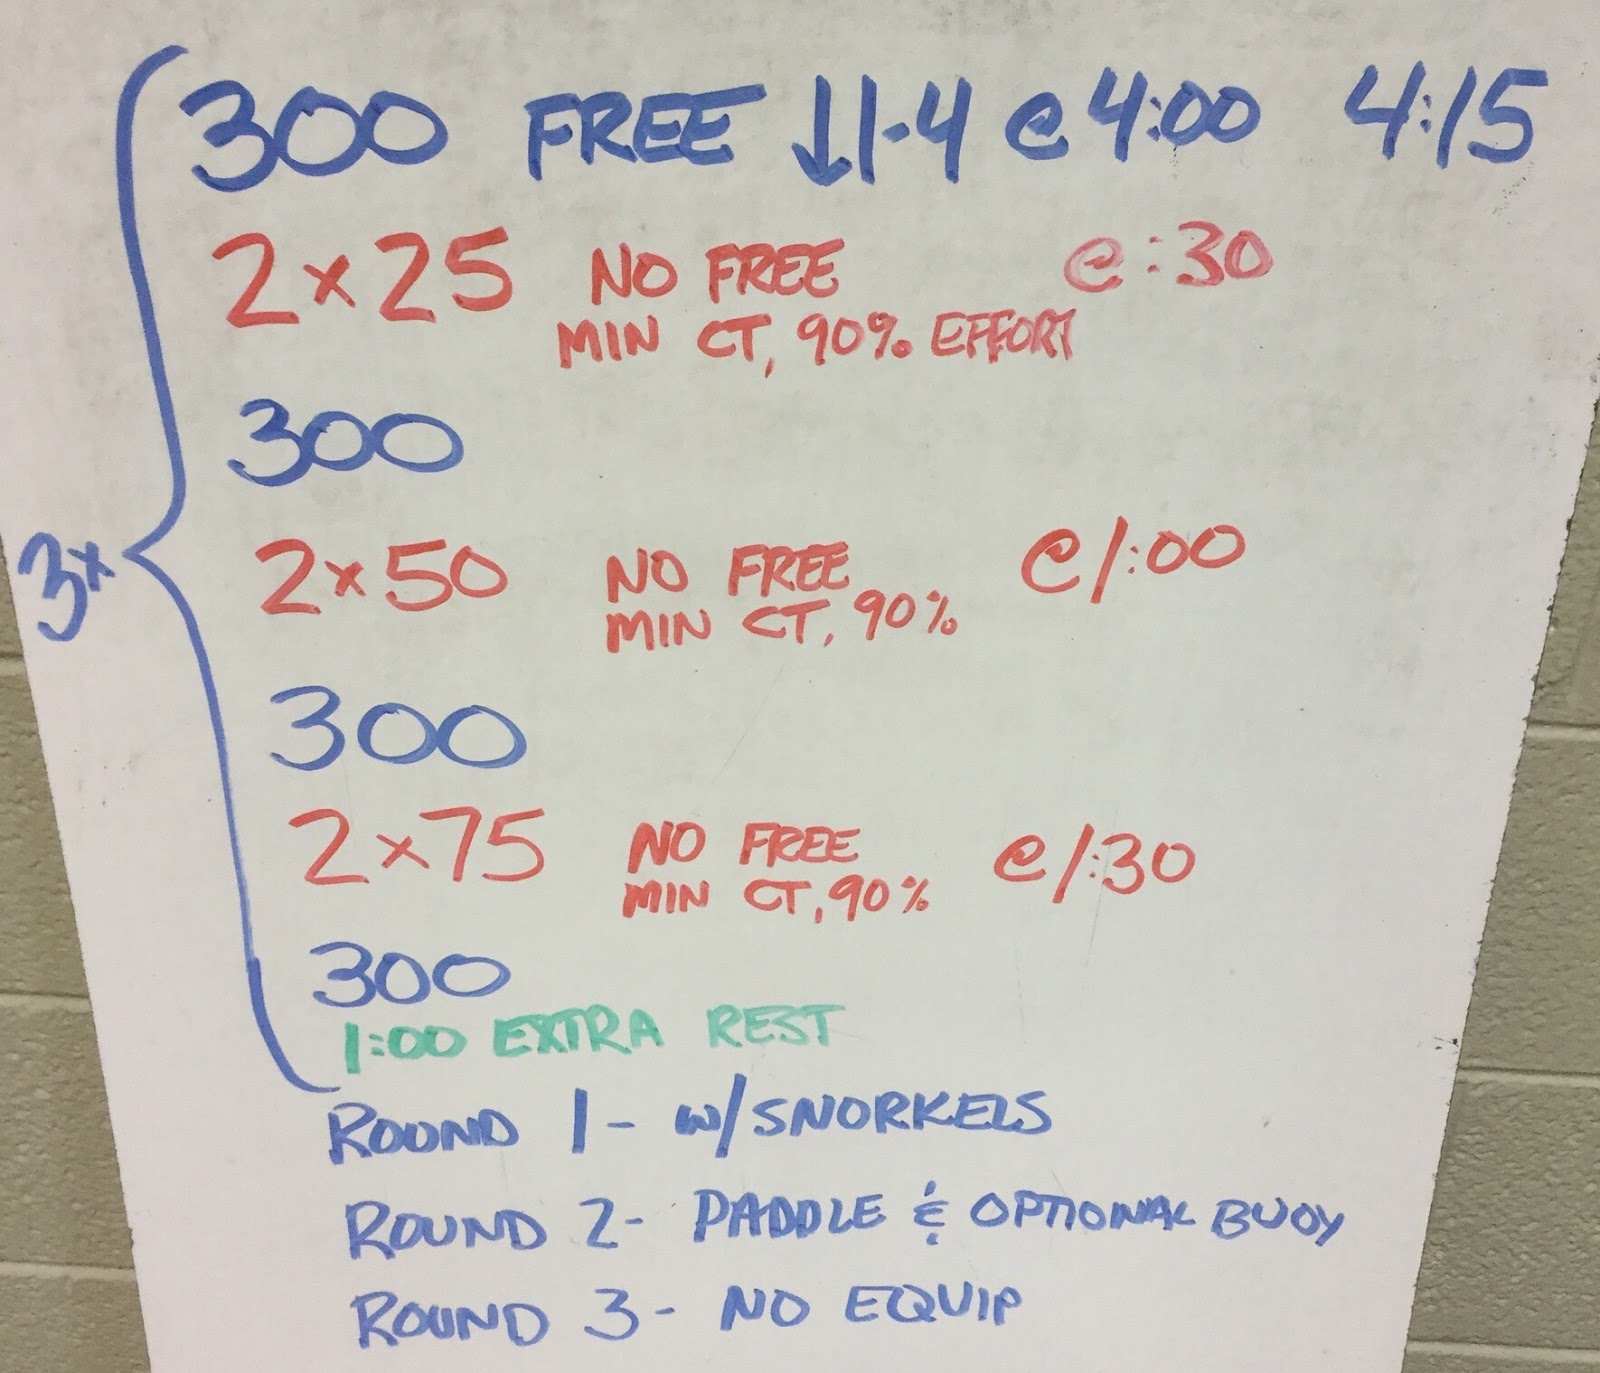 300 FREE ↓1-4 @ 4:00 4:15
2x25 NO FREE @ :30
MIN CT, 90% EFFORT
300
3x
2x50 NO FREE @ 1:00
MIN CT, 90%
300
2x75 NO FREE @ 1:30
MIN CT, 90%
300
1:00 EXTRA REST
ROUND 1- w/SNORKELS
ROUND 2- PADDLE & OPTIONAL BUOY
ROUND 3- NO EQUIP